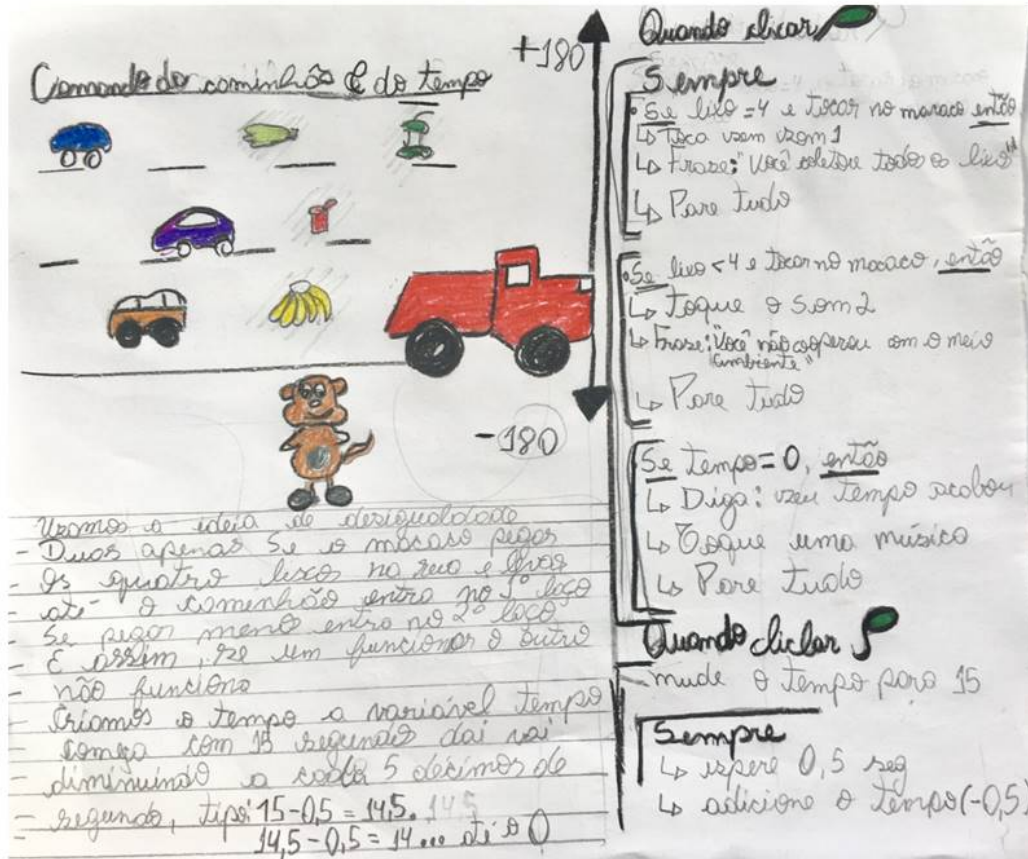 Comando do caminhão e do tempo
+180
-180
Usamos a ideia de desigualdade
- Duas apenas Se o macaco pegar
- Os quatro lixos na rua e levar
- até o caminhão entra no 1º laço
- Se pegar menos entra no 2º laço
- E assim, se um funcionar o outro
- não funciona
- Criamos o tempo a variável tempo
- começa com 15 segundos daí vai
- diminuindo a cada 5 décimos de
- segundo, tipo: 15-0,5 = 14,5.
14,5-0,5 = 14 ... até o 0
Quando clicar
Sempre
Se lixo =4 e tocar no macaco então
↳ Toca som 1
↳ Frase: "Você coletou todo o lixo"
↳ Pare tudo
Se lixo <4 e tocar no macaco, então
↳ Toque o Som 2
↳ Frase: "Você não cooperou com o meio
ambiente"
↳ Pare tudo
Se tempo = 0, então
↳ Diga: seu tempo acabou
↳ Toque uma música
↳ Pare tudo
Quando cliclar
mude o tempo para 15
Sempre
↳ espere 0,5 seg
↳ adicione o tempo (-0,5)